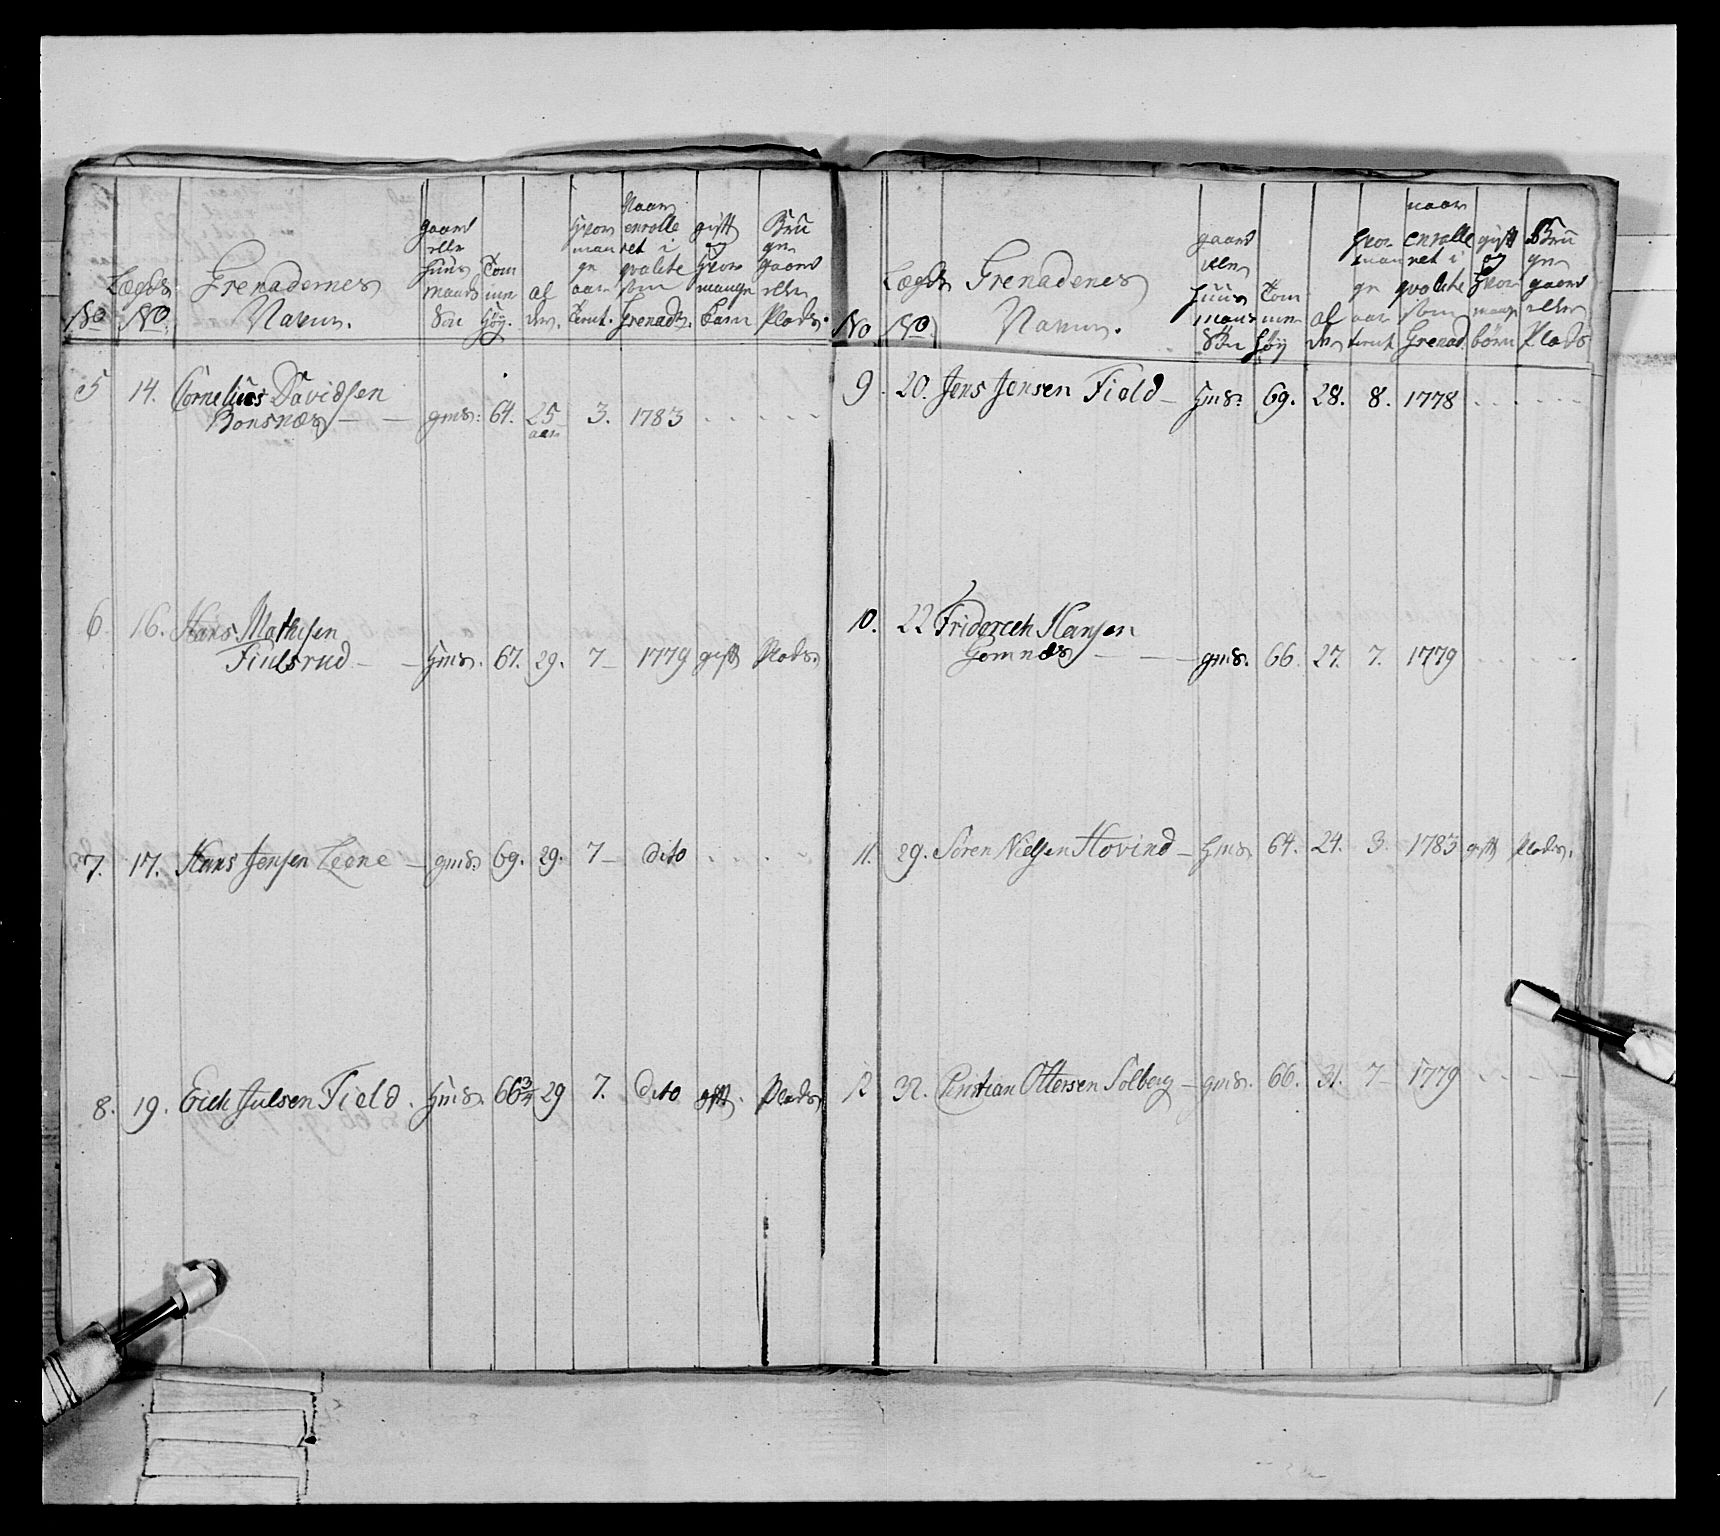 No
Lægds No
Grenademes
Navne.
gaard eller huus mands Søn
Tom me høy.
al der.
hvor man ge aar tient.
Naar enrolle ret i qvalite som Grenad.
gift og hvor mange barn
Bru ger gaard eller Plads.
5 14. Cornelius Davidsen
Bonsnæs — gms: 64. 25 aar 3. 1783 . . . .
6. 16. Hans Mathisen
Fiulsrud — hms. 67. 29. 7 — 1779 gift Plads.
7. 17. Hans Jensen Leene — gms. 69. 29. 7 — dito . . . .
8. 19. Erich Julsen Field. hms. 66 3/4 29 7. dito gift. Plads
No
Lægds No
Grenadenes
Navne.
gaard eller huus mans Søn
Tom me høy
al der
hvor man ge aar tient
naar enrolle ret i qvalite som Grenad.
gift og hvor mange børn
Bru ger gaard eller Plads
9. 20. Jens Jensen Field — hms. 69. 28. 8. 1778 . . . .
10. 22 Friderech Hansen
Gomnæs — gms. 66. 27. 7. 1779 . . . .
11. 29. Søren Nielsen Hovind — hms. 64. 24. 3. 1783 gift Plads.
12 32. Christian Ottersen Solberg — gms. 66. 31. 7 1779 . . . .